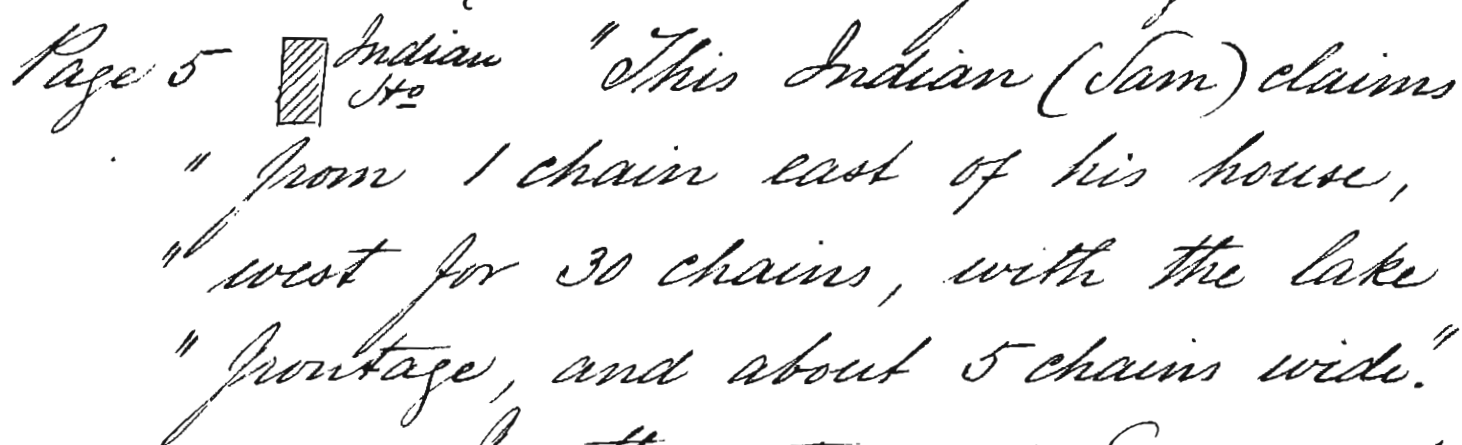 Page 5 Indian Ho "This Indian (Sam) claims
" from 1 chain east of his house,
" west for 30 chains, with the lake
" frontage, and about 5 chains wide."